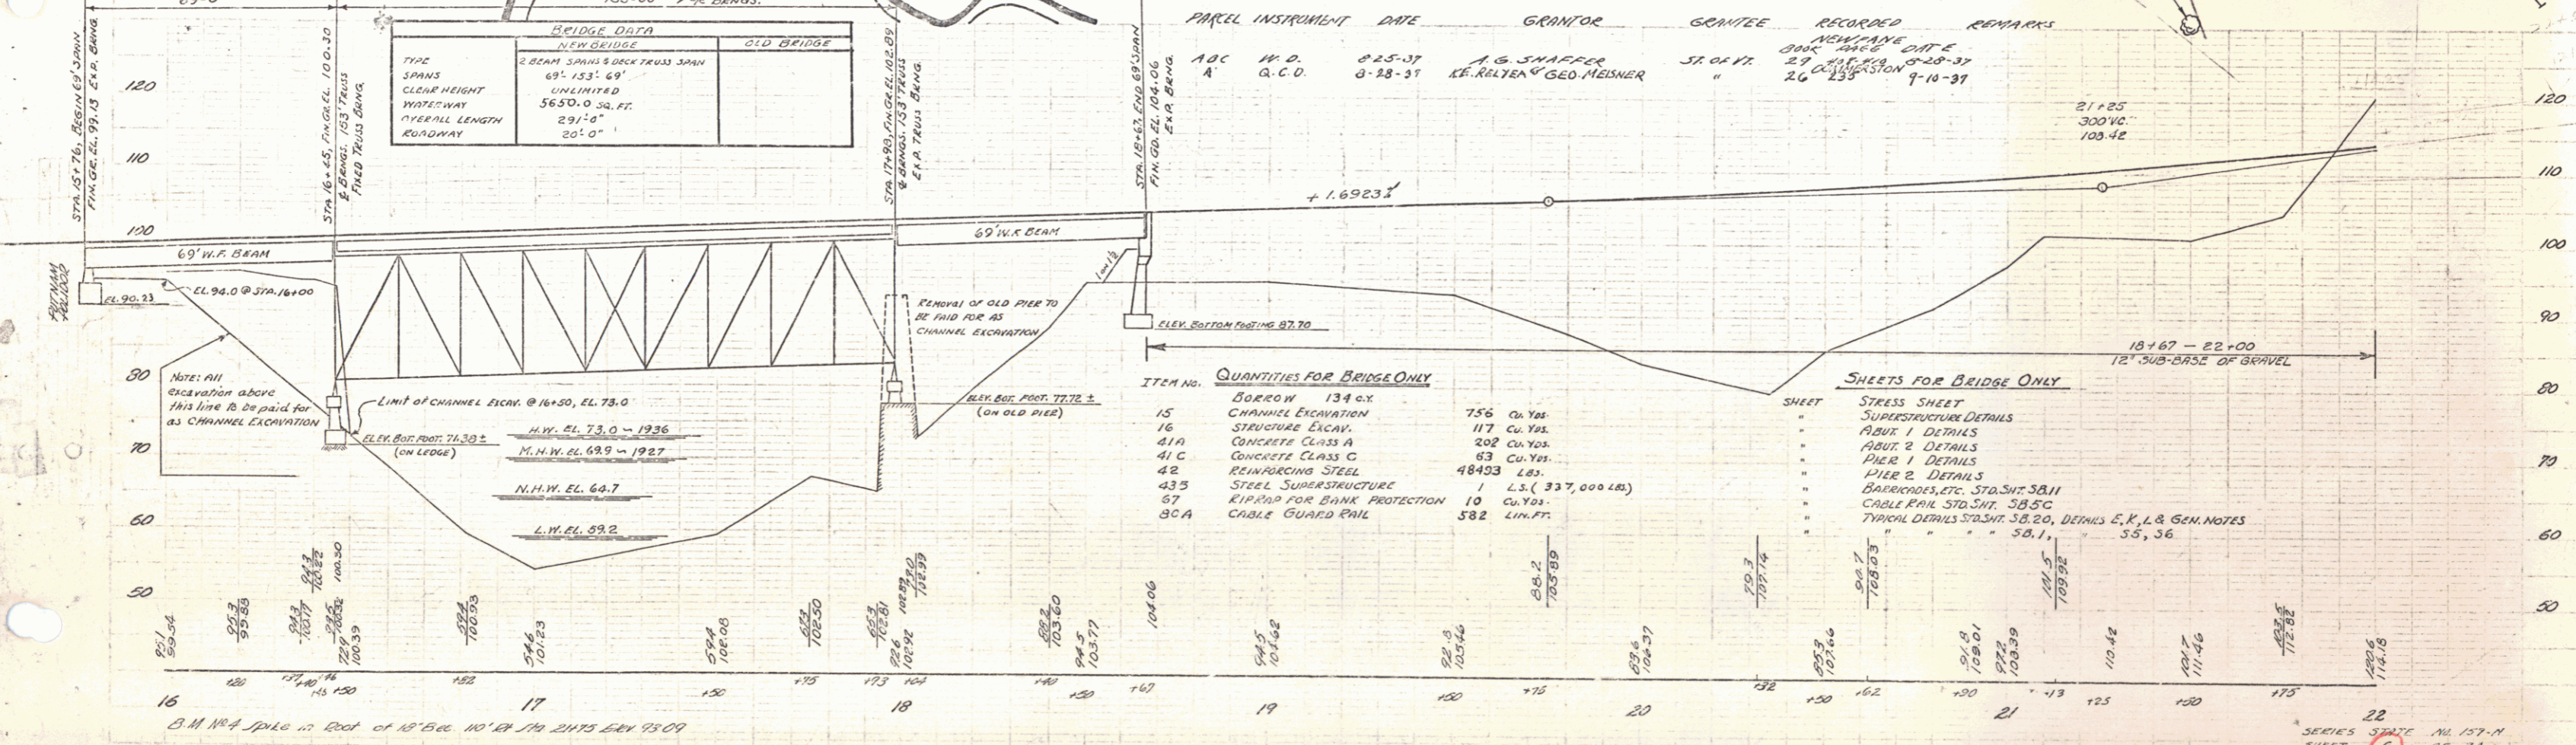 BRIDGE DATA
NEW BRIDGE OLD BRIDGE
TYPE 2 BEAM SPANS & DECK TRUSS SPAN
SPANS 69'- 153'- 69'
CLEAR HEIGHT UNLIMITED
WATERWAY 5650.0 SQ. FT.
OVERALL LENGTH 291'-0"
ROADWAY 20'-0"
PARCEL INSTRUMENT DATE GRANTOR GRANTEE RECORDED REMARKS
NEWFANE
BOOK PAGE DATE
ABC W.D. 8-25-37 A.G. SHAFFER ST. OF VT. 29 8-28-37
A Q.C.D. 8-28-37 K.E. RELYEA & GEO. MEISNER " 26 9-10-37
STA. 15+76, BEGIN 69' SPAN
FIN. GR. EL. 99.13 EXP. BRNG.
STA. 16+45, FIN. GR. EL. 100.30
℄ BRNGS. 153' TRUSS
FIXED TRUSS BRNG.
STA. 17+98, FIN. GR. EL. 102.89
℄ BRNGS. 153' TRUSS
EXP. TRUSS BRNG.
STA. 18+67, END 69' SPAN
FIN. GD. EL. 104.06
EXP. BRNG.
120
110
100
80
70
60
50
120
110
100
90
80
70
60
50
21+25
300' V.C.
108.42
+1.6923%
69' W.F. BEAM
69' W.F. BEAM
PUTNAM
EL. 90.23
EL. 94.0 @ STA. 16+00
1 on 1½
REMOVAL OF OLD PIER TO
BE PAID FOR AS
CHANNEL EXCAVATION
ELEV. BOTTOM FOOTING 87.70
18+67 — 22+00
12" SUB-BASE OF GRAVEL
NOTE: All
excavation above
this line to be paid for
as CHANNEL EXCAVATION
LIMIT OF CHANNEL EXCAV. @ 16+50, EL. 73.0
ELEV. BOT. FOOT. 71.38±
(ON LEDGE)
H.W. EL. 73.0 ~ 1936
M.H.W. EL. 69.9 ~ 1927
N.H.W. EL. 64.7
L.W. EL. 59.2
ELEV. BOT. FOOT. 77.72 ±
(ON OLD PIER)
ITEM NO. QUANTITIES FOR BRIDGE ONLY
BORROW 134 C.Y.
15 CHANNEL EXCAVATION 756 CU. YDS.
16 STRUCTURE EXCAV. 117 CU. YDS.
41A CONCRETE CLASS A 202 CU. YDS.
41C CONCRETE CLASS C 63 CU. YDS.
42 REINFORCING STEEL 48493 LBS.
43S STEEL SUPERSTRUCTURE 1 L.S. (337,000 LBS)
67 RIPRAP FOR BANK PROTECTION 10 CU. YDS.
80A CABLE GUARD RAIL 582 LIN. FT.
SHEETS FOR BRIDGE ONLY
SHEET STRESS SHEET
" SUPERSTRUCTURE DETAILS
" ABUT. 1 DETAILS
" ABUT. 2 DETAILS
" PIER 1 DETAILS
" PIER 2 DETAILS
" BARRICADES, ETC. STD. SHT. SB.11
" CABLE RAIL STD. SHT. SB5C
" TYPICAL DETAILS STD. SHT. SB.20, DETAILS E, K, L & GEN. NOTES
" " " " SB.1, " S5, S6
95.1 99.54
95.3 99.88
94.3 100.17
94.3 100.22
100.30
100.32
72.9 100.39
59.4 100.93
54.6 101.23
59.4 102.08
67.3 102.50
65.3 102.81
102.89
92.6 102.92
102.99
88.2 103.60
94.5 103.77
104.06
94.5 104.62
92.8 105.46
88.2 105.89
83.6 106.37
79.3 107.14
85.3 107.66
90.7 108.03
91.8 109.01
97.2 108.39
101.5 109.92
110.42
101.7 111.46
103.5 112.82
120.6 114.18
+20 +37 +40 +46 +45 +50 +82 +50 +75 +73 +04 +40 +50 +67 +50 +76 +32 +50 +62 +90 +13 +25 +50 +75
16 17 18 19 20 21 22
B.M. No 4 Spike in Root of 18" Bee. 110' Rt Sta 21+75 Elev 93.09
SERIES STATE NO. 157-M